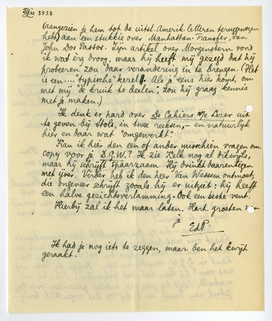 3935
(aangezien je hem tot de uitst. Amerik. letteren terugwagen
hebt) aan een stukkie over Manhattan Transfer, van
John Dos Passos. Zijn artikel over Morgenstern vond
ik wat erg droog; maar hij heeft mij gezegd dat hij
proberen zou daar verandering in te brengen. (Het
is een .... "typische" kerel! Als je eens hier komt, om
met mij "de kruik te deelen", zou hij graag kennis
met je maken.)
Ik denk er hard over De Cahiers v/e Lezer uit
te geven bij Stols, in twee reeksen, en natuurlijk
hier en daar wat "omgewerkt".
Kan ik hier den een of ander misschien vragen om
copy voor je D.G.W.? Ik zie Kelk nogal dikwijls,
maar hij schrijft spaarzaam. Hij drinkt daarentegen
met ijver. Verder heb ik den heer Van Wessem ontmoet,
die ongeveer schrijft zooals hij er uitziet: hij heeft
een halve gezichtsverlamming. Ook een beste vent.
Hierbij zal ik het maar laten. Hart. groeten v/
je
EdP.
Ik had je nog iets te zeggen, maar ben het kwijt
geraakt.